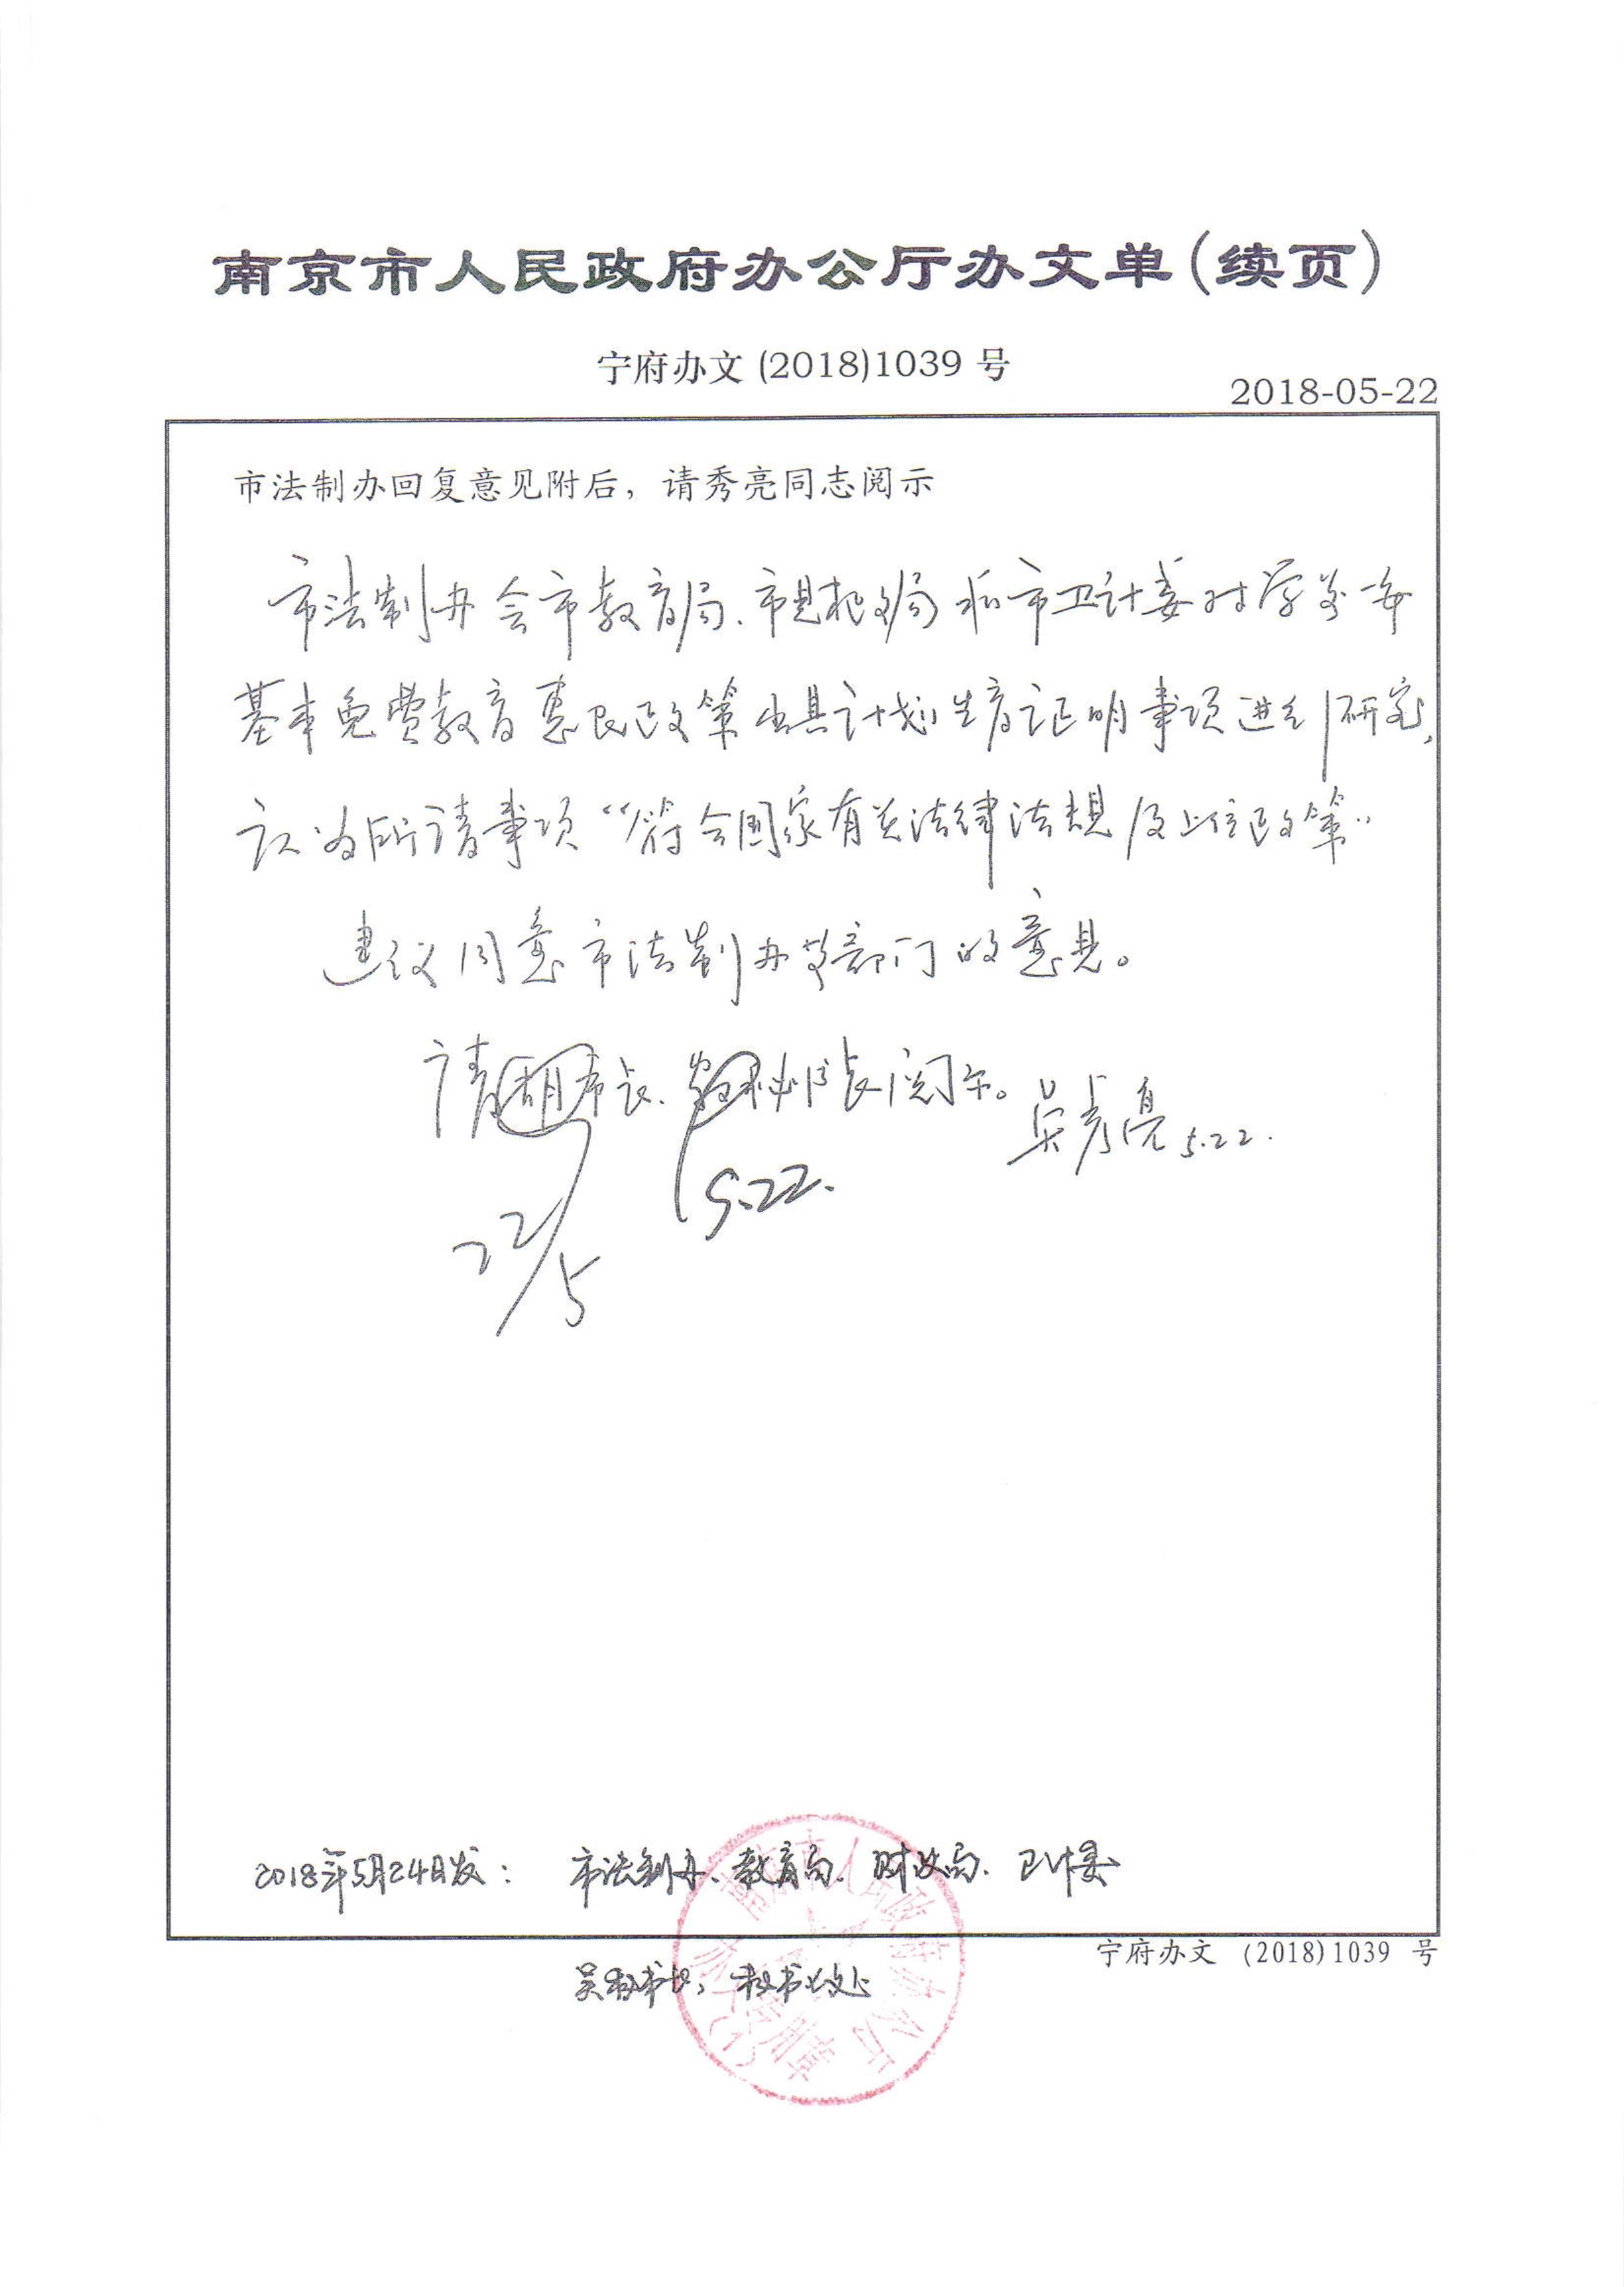 南京市人民政府办公厅办文单(续页)
宁府办文 (2018)1039 号
2018-05-22
市法制办回复意见附后，请秀亮同志阅示
市法制办会市教育局、市财政局和市卫计委对学前一年
基本免费教育惠民政策出具计划生育证明事项进行研究，
认为所请事项“符合国家有关法律法规及上位政策”
建议同意市法制办等部门的意见。
请胡市长、秘书长阅示。吴秀亮 5.22.
5.22.
22/5
2018年5月24日发： 市法制办、教育局、财政局、卫计委
宁府办文 (2018)1039 号
吴秘书长，秘书处
南京市人民政府办公厅
办文专用章
(1)